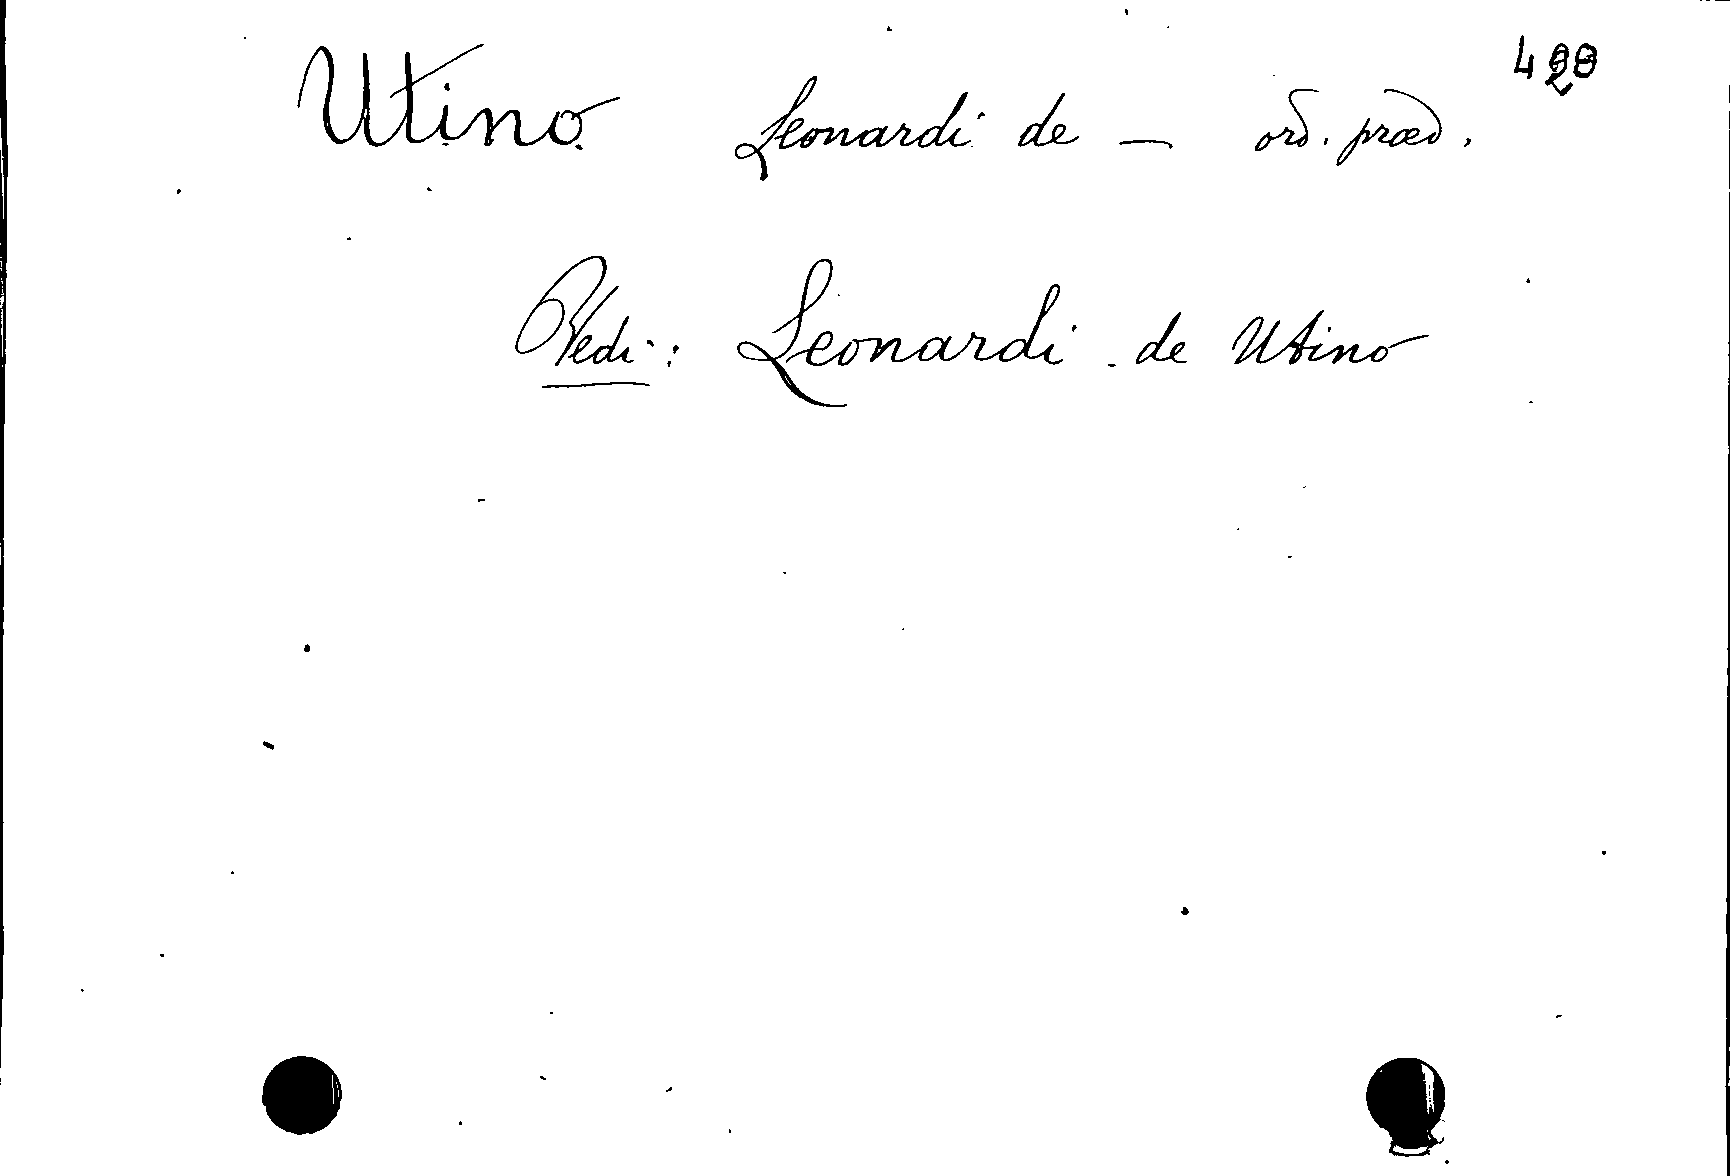 Utino Leonardi de — ord. præd. 428
Vedi: Leonardi de Utino